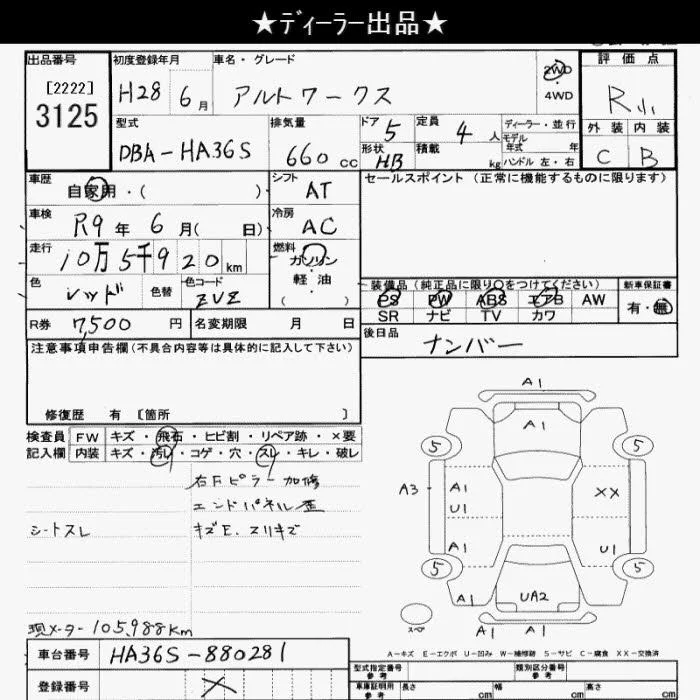 ★ディーラー出品★
出品番号 初度登録年月 車名・グレード 2WD 評価点
[2222] H28 6月 アルトワークス 4WD R小
3125 型式 排気量 ドア 定員 ディーラー・並行 外装 内装
DBA-HA36S 660cc 5 4人 モデル年式 年 C B
形状 HB 積載 kg ハンドル 左・右
車歴 自家用・( ) シフト AT セールスポイント (正常に機能するものに限ります)
車検 R9年6月( 日) 冷房 AC
走行 10万5千920km 燃料 ガソリン
色 レッド 色替 色コード ZVZ 軽・油 装備品 (純正品に限り○をつけてください) 新車保証書
( ) PS PW ABS エアB AW 有・無
R券 7,500円 名変期限 月 日 SR ナビ TV カワ
注意事項申告欄(不具合内容等は具体的に記入して下さい) 後日品 ナンバー
修復歴 有 [箇所 ]
検査員 FW キズ・飛石・ヒビ割・リペア跡・×要
記入欄 内装 キズ・汚レ・コゲ・穴・スレ・キレ・破レ
右Fピラー加修
エンドパネル歪
シートスレ キズE.スリキズ
A1
A1
5 5
A3 A1 XX
U1
A1 U1
5 5
A1 UA2
スペ A1 A1
現メーター105,988km A-キズ E-エクボ U-凹み W-補修跡 S-サビ C-腐食 XX-交換済
車台番号 HA36S-880281 型式指定番号 類別区分番号
参考 参考
登録番号 × 車庫証明用 長さ 幅 高さ
参考 cm cm cm